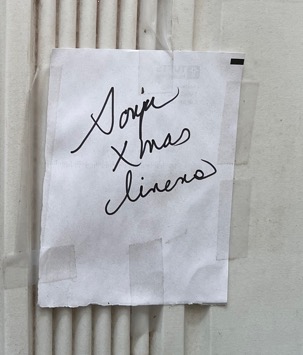 Sonja
Xmas
linens